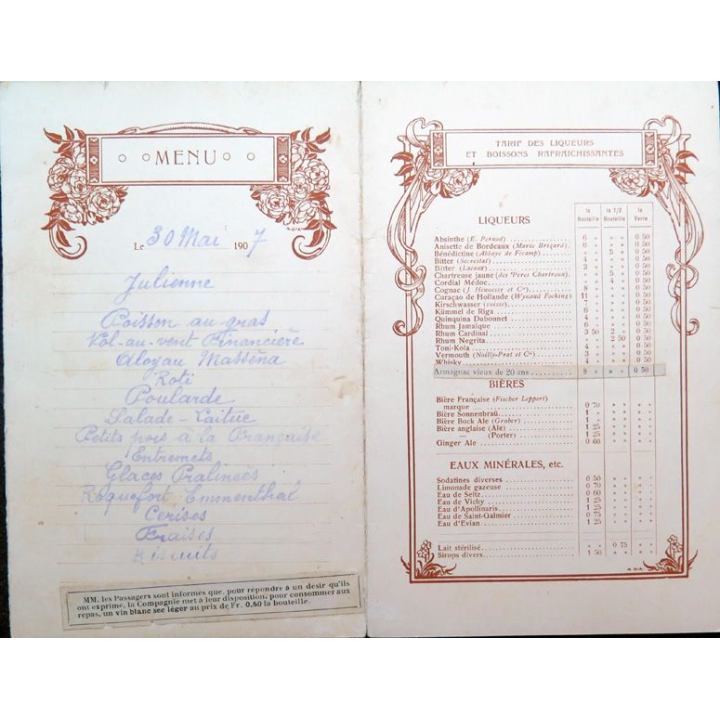 MENU
Le 30 Mai 1907
Julienne
Poisson au gras
Vol-au-vent Financière
Aloyau Masséna
Roti
Poularde
Salade - Laitue
Petits pois à la Française
Entremets
Glaces Pralinées
Roquefort Emmenthal
Cerises
Fraises
Biscuits
MM. les Passagers sont informés que, pour répondre à un desir qu'ils
ont exprimé, la Compagnie met à leur disposition, pour consommer aux
repas, un vin blanc sec léger au prix de Fr. 0,60 la bouteille.
TARIF DES LIQUEURS
ET BOISSONS RAFRAICHISSANTES
la Bouteille la 1/2 Bouteille le Verre
LIQUEURS
Absinthe (E. Pernod) 6 » » » 0 50
Anisette de Bordeaux (Marie Brizard) 6 » » » 0 50
Bénédictine (Abbaye de Fécamp) » » 5 » 0 50
Bitter (Secrestat) 4 » » » 0 50
Bitter 3 » » » 0 50
Chartreuse jaune (des Pères Chartreux) » » 5 » 0 50
Cordial Médoc » » 4 » 0 50
Cognac (J. Hennessy et Cie) 8 » » » 0 50
Curaçao de Hollande (Wynand Focking) 11 » » » 0 50
Kirschwasser 0 50
Kümmel de Riga 6 » » » 0 50
Quinquina Dubonnet 4 » » » 0 50
Rhum Jamaïque 6 » » » 0 50
Rhum Cardinal 3 50 2 » 0 50
Rhum Negrita » » 2 50 0 50
Toni-Kola 4 » » » 0 50
Vermouth (Noilly-Prat et Cie) 3 » » » 0 50
Whisky 4 » » » 0 50
Armagnac vieux de 20 ans 8 » » » 0 50
BIÈRES
Bière Française (Fischer Leppert)
marque 0 70 » » » »
Bière Sonnenbraü 1 » » » » »
Bière Bock Ale (Gruber) 1 » » » » »
Bière anglaise (Ale) 1 25 » » » »
— (Porter) 1 25 » » » »
Ginger Ale 0 60 » » » »
EAUX MINÉRALES, etc.
Sodatines diverses 0 50 » » » »
Limonade gazeuse 0 70 » » » »
Eau de Seltz 0 60 » » » »
Eau de Vichy 1 25 » » » »
Eau d'Apollinaris 1 25 » » » »
Eau de Saint-Galmier 0 75 » » » »
Eau d'Evian 1 25 » » » »
Lait stérilisé » » 0 75 » »
Sirops divers 1 50 » » » »